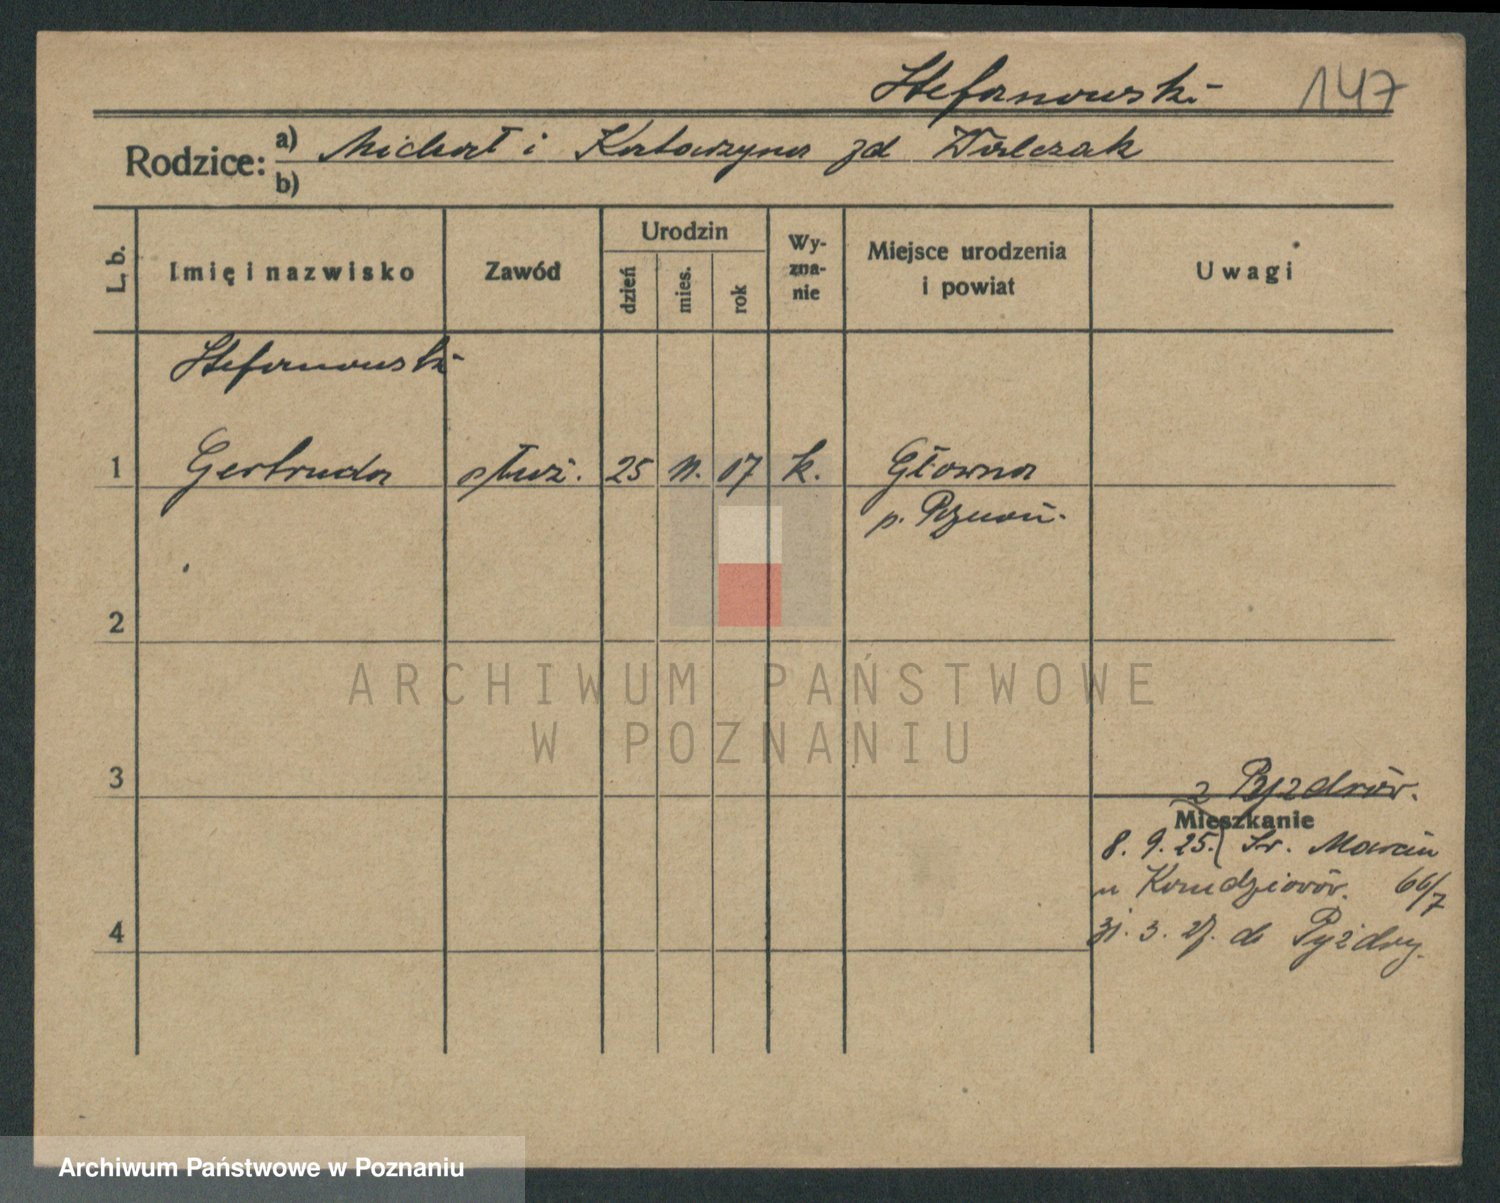 Stefanowski 147
Rodzice: a) Michał i Katarzyna zd Walczak
b)
L. b. Imię i nazwisko Zawód Urodzin dzień mies. rok Wy-zna-nie Miejsce urodzenia i powiat Uwagi
Stefanowski
1 Gertruda służ. 25 11. 07 k. Głowna
p. Poznań.
2
3
z Pyzdrów.
Mieszkanie
8. 9. 25. Św. Marcin
u 66/7
4
31. 3. 27. do Pyzdry.
ARCHIWUM PAŃSTWOWE
W POZNANIU
Archiwum Państwowe w Poznaniu